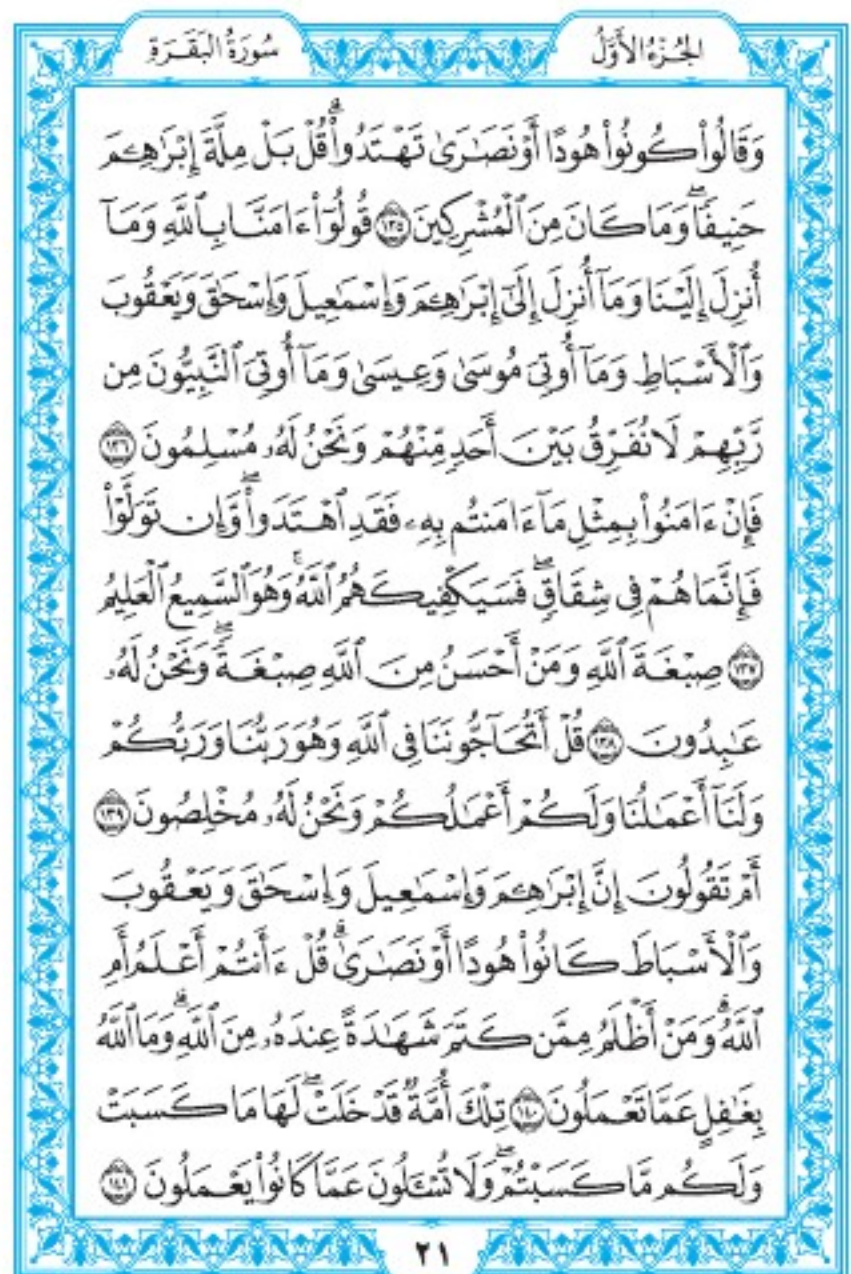 سُورَةُ البَقَرَةِ
الجُزْءُ الأَوَّلُ
وَقَالُوا۟ كُونُوا۟ هُودًا أَوْ نَصَـٰرَىٰ تَهْتَدُوا۟ۗ قُلْ بَلْ مِلَّةَ إِبْرَٰهِـۧمَ
حَنِيفًاۖ وَمَا كَانَ مِنَ ٱلْمُشْرِكِينَ ١٣٥ قُولُوٓا۟ ءَامَنَّا بِٱللَّهِ وَمَآ
أُنزِلَ إِلَيْنَا وَمَآ أُنزِلَ إِلَىٰٓ إِبْرَٰهِـۧمَ وَإِسْمَـٰعِيلَ وَإِسْحَـٰقَ وَيَعْقُوبَ
وَٱلْأَسْبَاطِ وَمَآ أُوتِىَ مُوسَىٰ وَعِيسَىٰ وَمَآ أُوتِىَ ٱلنَّبِيُّونَ مِن
رَّبِّهِمْ لَا نُفَرِّقُ بَيْنَ أَحَدٍ مِّنْهُمْ وَنَحْنُ لَهُۥ مُسْلِمُونَ ١٣٦
فَإِنْ ءَامَنُوا۟ بِمِثْلِ مَآ ءَامَنتُم بِهِۦ فَقَدِ ٱهْتَدَوا۟ۖ وَّإِن تَوَلَّوْا۟
فَإِنَّمَا هُمْ فِى شِقَاقٍۖ فَسَيَكْفِيكَهُمُ ٱللَّهُۚ وَهُوَ ٱلسَّمِيعُ ٱلْعَلِيمُ
١٣٧ صِبْغَةَ ٱللَّهِ وَمَنْ أَحْسَنُ مِنَ ٱللَّهِ صِبْغَةًۖ وَنَحْنُ لَهُۥ
عَـٰبِدُونَ ١٣٨ قُلْ أَتُحَآجُّونَنَا فِى ٱللَّهِ وَهُوَ رَبُّنَا وَرَبُّكُمْ
وَلَنَآ أَعْمَـٰلُنَا وَلَكُمْ أَعْمَـٰلُكُمْ وَنَحْنُ لَهُۥ مُخْلِصُونَ ١٣٩
أَمْ تَقُولُونَ إِنَّ إِبْرَٰهِـۧمَ وَإِسْمَـٰعِيلَ وَإِسْحَـٰقَ وَيَعْقُوبَ
وَٱلْأَسْبَاطَ كَانُوا۟ هُودًا أَوْ نَصَـٰرَىٰۗ قُلْ ءَأَنتُمْ أَعْلَمُ أَمِ
ٱللَّهُۗ وَمَنْ أَظْلَمُ مِمَّن كَتَمَ شَهَـٰدَةً عِندَهُۥ مِنَ ٱللَّهِۗ وَمَا ٱللَّهُ
بِغَـٰفِلٍ عَمَّا تَعْمَلُونَ ١٤٠ تِلْكَ أُمَّةٌ قَدْ خَلَتْۖ لَهَا مَا كَسَبَتْ
وَلَكُم مَّا كَسَبْتُمْۖ وَلَا تُسْـَٔلُونَ عَمَّا كَانُوا۟ يَعْمَلُونَ ١٤١
٢١